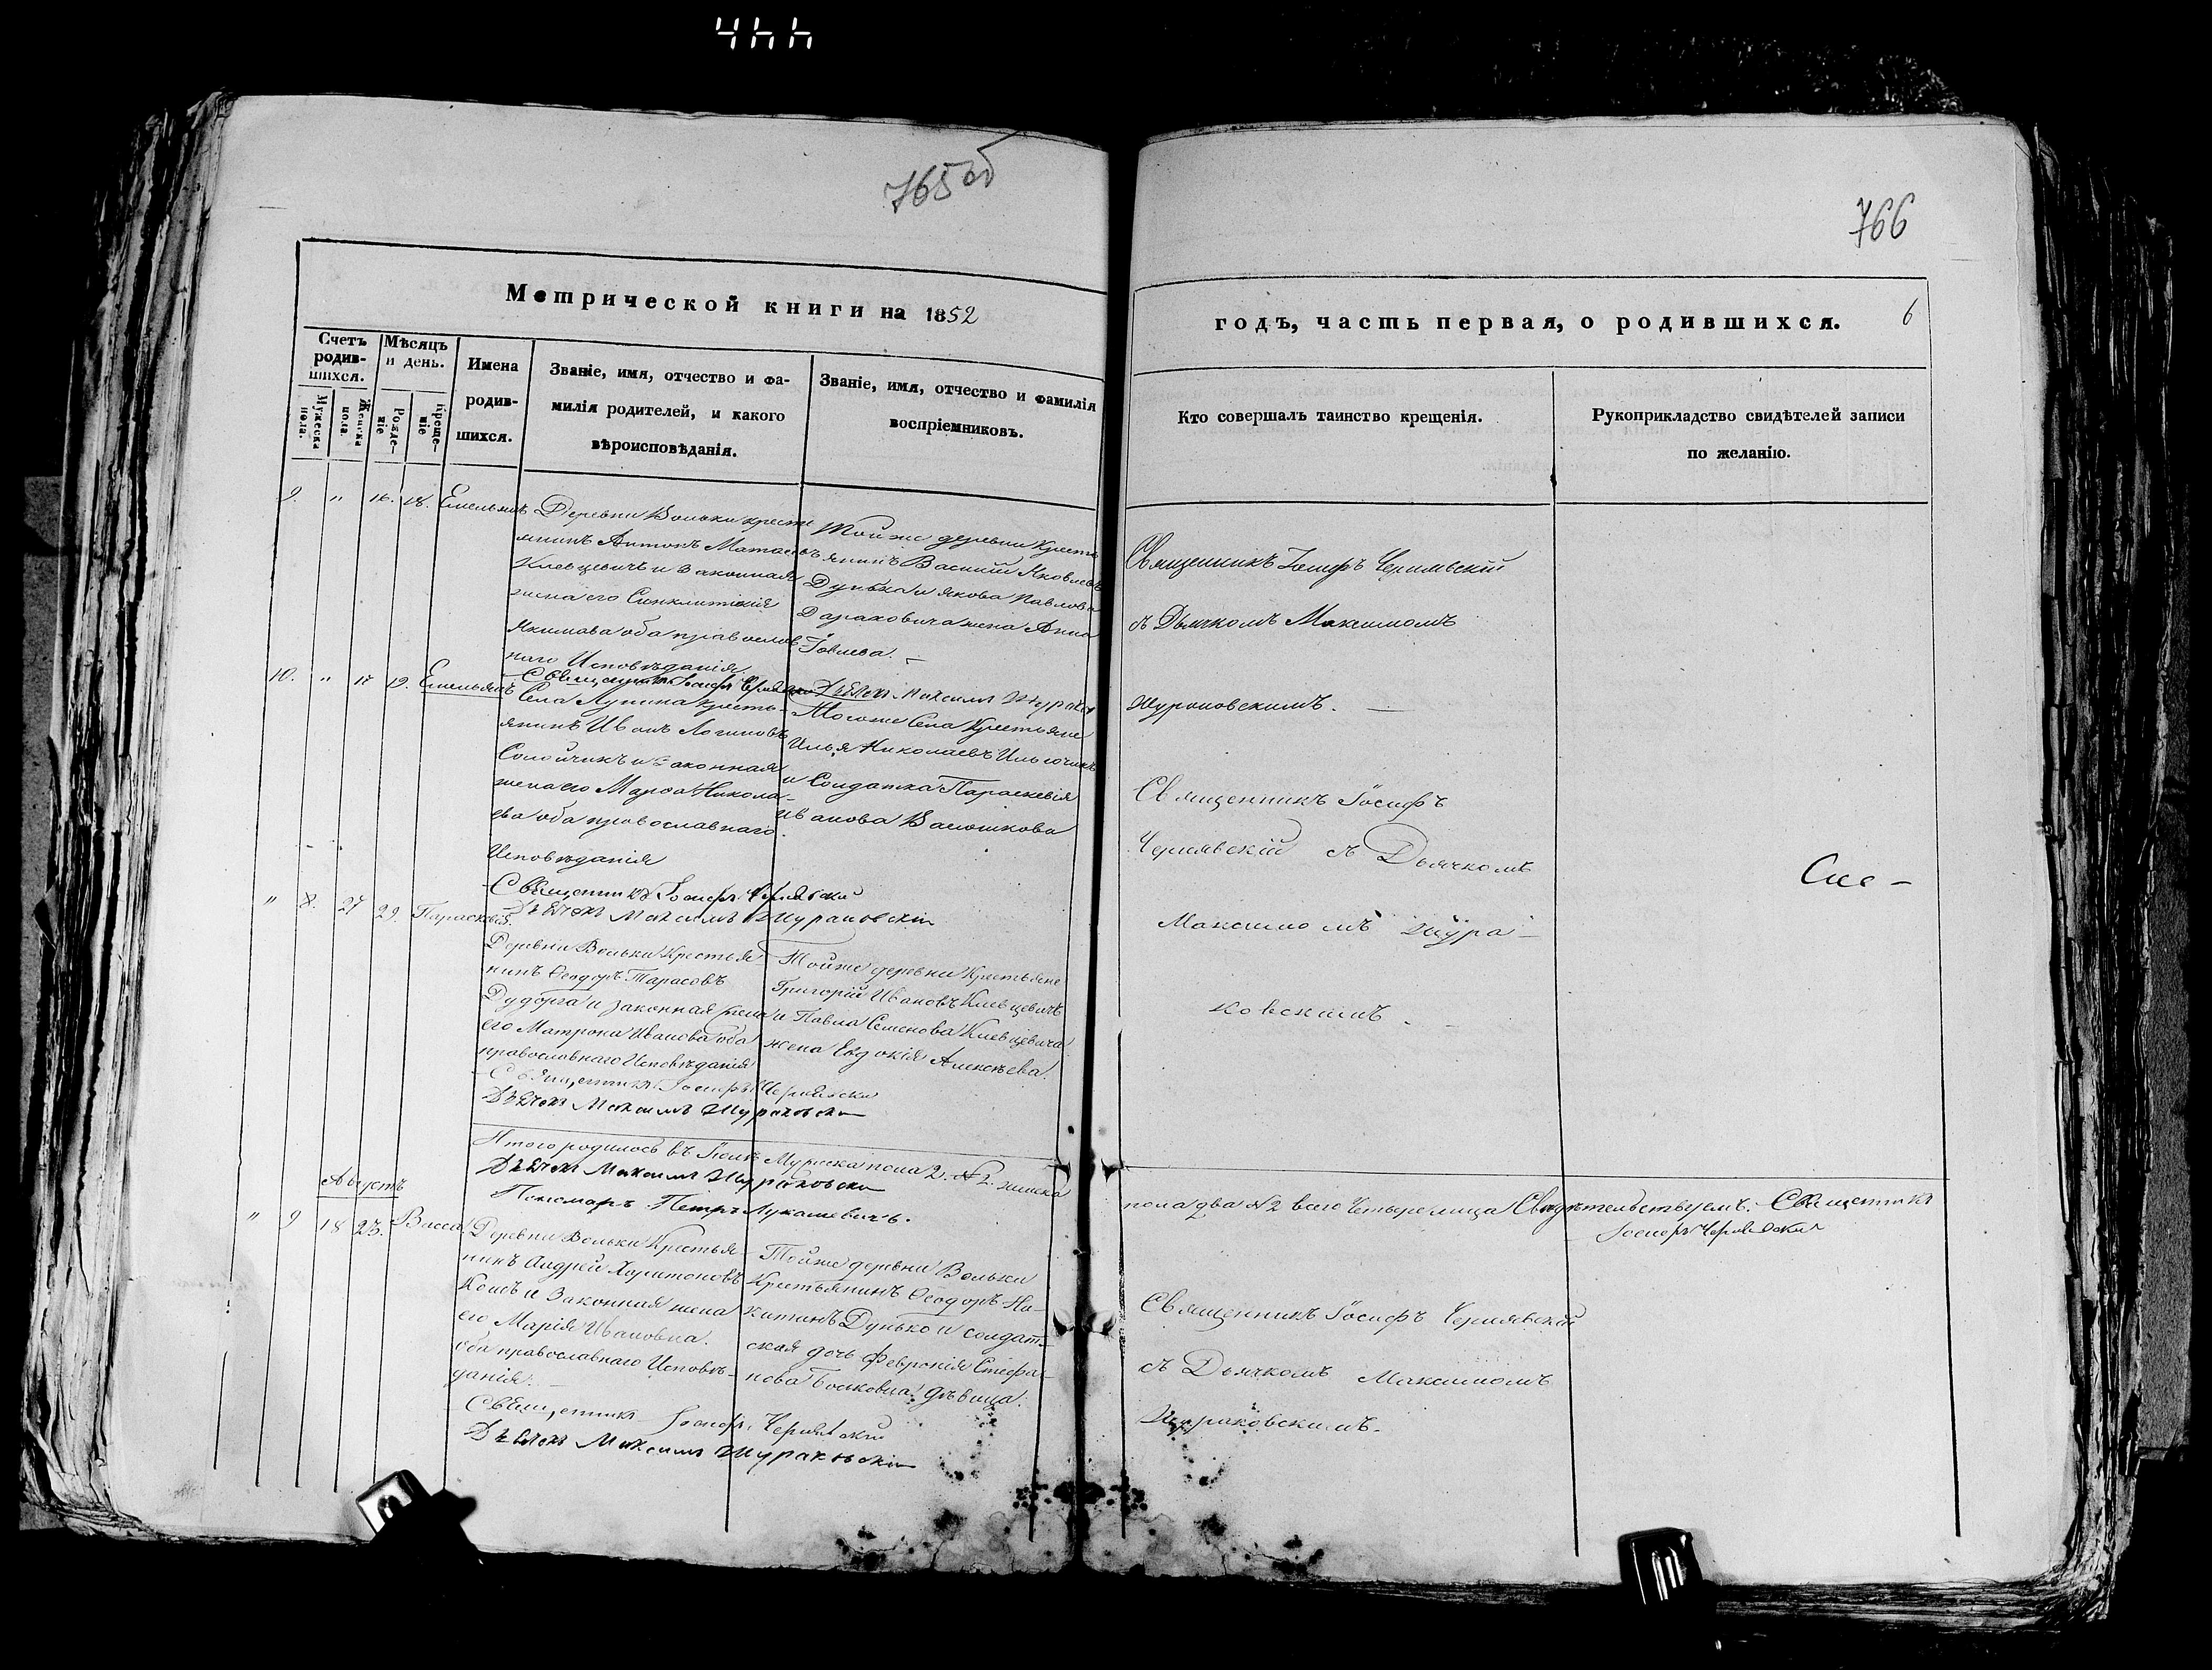 444
765 об
766
Метрической книги на 1852
годъ, часть первая, о родившихся.
6
Счетъ родив-шихся.
Мужеска пола.
Женска пола.
Мѣсяцъ и день.
Рожде-ніе
Креще-ніе
Имена
родив-
шихся.
Званіе, имя, отчество и фа-
милія родителей, и какого
вѣроисповѣданія.
Званіе, имя, отчество и фамилія
воспріемниковъ.
Кто совершалъ таинство крещенія.
Рукоприкладство свидѣтелей записи
по желанію.
9. " 16. 18. Емельянъ
Деревни Вольки кресть
янинъ Антонъ
Клевцевичъ и Законная
жена его Синклитикія
Якимова оба православ
наго Исповѣданія
Священникъ Іосифъ
Тойже деревни Кресть
янинъ Василій Яковлевъ
Дунько и Якова Павлова
жена Анна
Іовлева.
Священникъ Іосифъ Чернявскій
съ Дьячкомъ Максимомъ
Жураковскимъ.
10. " 17 19. Емельянъ
Села Лунина Кресть-
янинъ Иванъ Логиновъ
и Законная
жена его Марѳа Никола-
ева оба православнаго
Исповѣданія
Священникъ Іосифъ Чернявскій
Дьячокъ Максимъ Жураковскій
Дьячокъ Максимъ
Тогоже Села Крестьяне
Илья Николаевъ Ильючикъ
и Солдатка Параскевія
Иванова Васюшкова
Священникъ Іосифъ
Чернявскій съ Дьячкомъ
Максимомъ Жура-
ковскимъ.
" 8. 27 29. Параскевія.
Деревни Вольки Крестья
нинъ Ѳеодоръ Тарасовъ
Дудорга и законная жена
его Матрона Иванова оба
православнаго Исповѣданія
Священникъ Іосифъ Чернявскій
Дьячокъ Максимъ Жураковскій
Тойже деревни Крестьяне
Григорій Ивановъ Клевцевичъ
и Павла Семенова Клевцевича
жена Евдокія Алексѣева.
Итого родилось въ Іюлѣ Мужеска пола 2. № 2. женска
пола два № 2 всего Четыре лица Свидѣтельствуемъ. Священникъ
Іосифъ Чернявскій
Дьячокъ Максимъ Жураковскій
Пономарь Петръ Лукашевичъ.
Августъ
" 9 18 23. Васса.
Деревни Вольки Крестья-
нинъ Андрей Харитоновъ
и Законная жена
его Марія Ивановна.
оба православнаго Исповѣ-
данія.
Священникъ Іосифъ Чернявскій
Дьячокъ Максимъ Жураковскій
Тойже деревни Вольки
Крестьянинъ Ѳеодоръ Ни-
китинъ Дунько и солдат-
ская дочь Февронія Стефа-
нова дѣвица.
Священникъ Іосифъ Чернявскій
съ Дьячкомъ Максимомъ
Жураковскимъ.